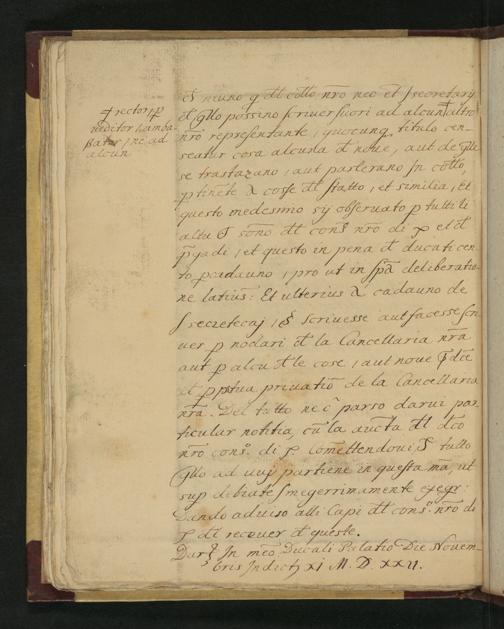 rector, ꝑ
veditor, Amba-
ssator, ne ad
alcun
niuno q̃ dł collo nr̃o neo et secretary
possino scriver fuori ad alcun altro
nr̃o representante, quocunq titulo cen-
seatur cosa alcuna dł noue, aut de qłle
se trattarano, aut parlerano in collo,
cosse dł statto, et similia, et
questo medesimo sij obseruato ꝑ tutti li
altri dł cons. nr̃o di X et dł
p̃gadi, et questo in pena dł ducati cen-
to ꝑ cadauno, pro ut in sp̃a deliberatio-
ne latius: Et ulterius cadauno de
secretarj, scriuesse aut facesse scri
uer ꝑ nodari dł la Cancellaria nr̃a
aut ꝑ alcu dłle cose, aut noue p̃dte
ꝑpetua priuatiõ de la Cancellaria
nr̃a. Del tutto ne è parso darui par
ticular notitia, cũ la aucta dł dco
nr̃o cons. di X comettendoui tutto
qłlo ad uuy partiene in questa ma, ut
sup debiate integerrimamente exeqr:
Dando aduiso alli Capi dł cons. nr̃o di
X dł receuer dł queste.
Dat In nr̃o Ducali Palatio Die Nouem-
bris Indict XI M. D XXII.